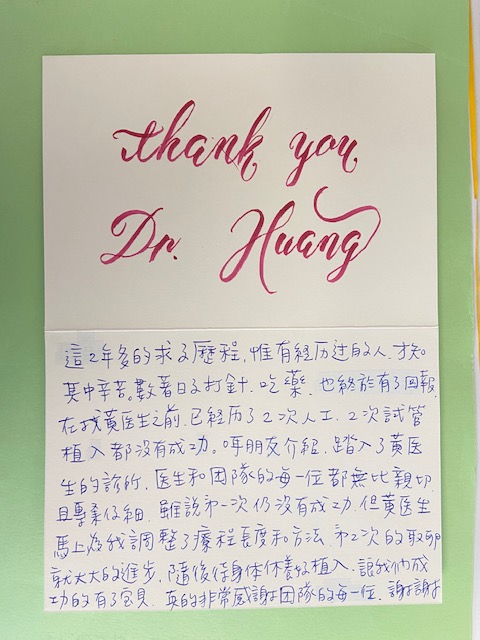 thank you
Dr. Huang
這2年多的求子歷程,惟有经历过的人,才知
其中辛苦。數著日子打針、吃藥,也終於有了回報,
在找黃医生之前,已经历了2次人工、2次試管
植入都沒有成功。經朋友介紹,踏入了黃医
生的診所,医生和团隊的每一位都無比親切
且專業仔細,雖說第一次仍沒有成功,但黃医生
馬上為我調整了療程長度和方法,第2次的取卵
就大大的進步,隨後待身体休養好植入,讓我们成
功的有了宝貝,真的非常感謝团隊的每一位,謝謝